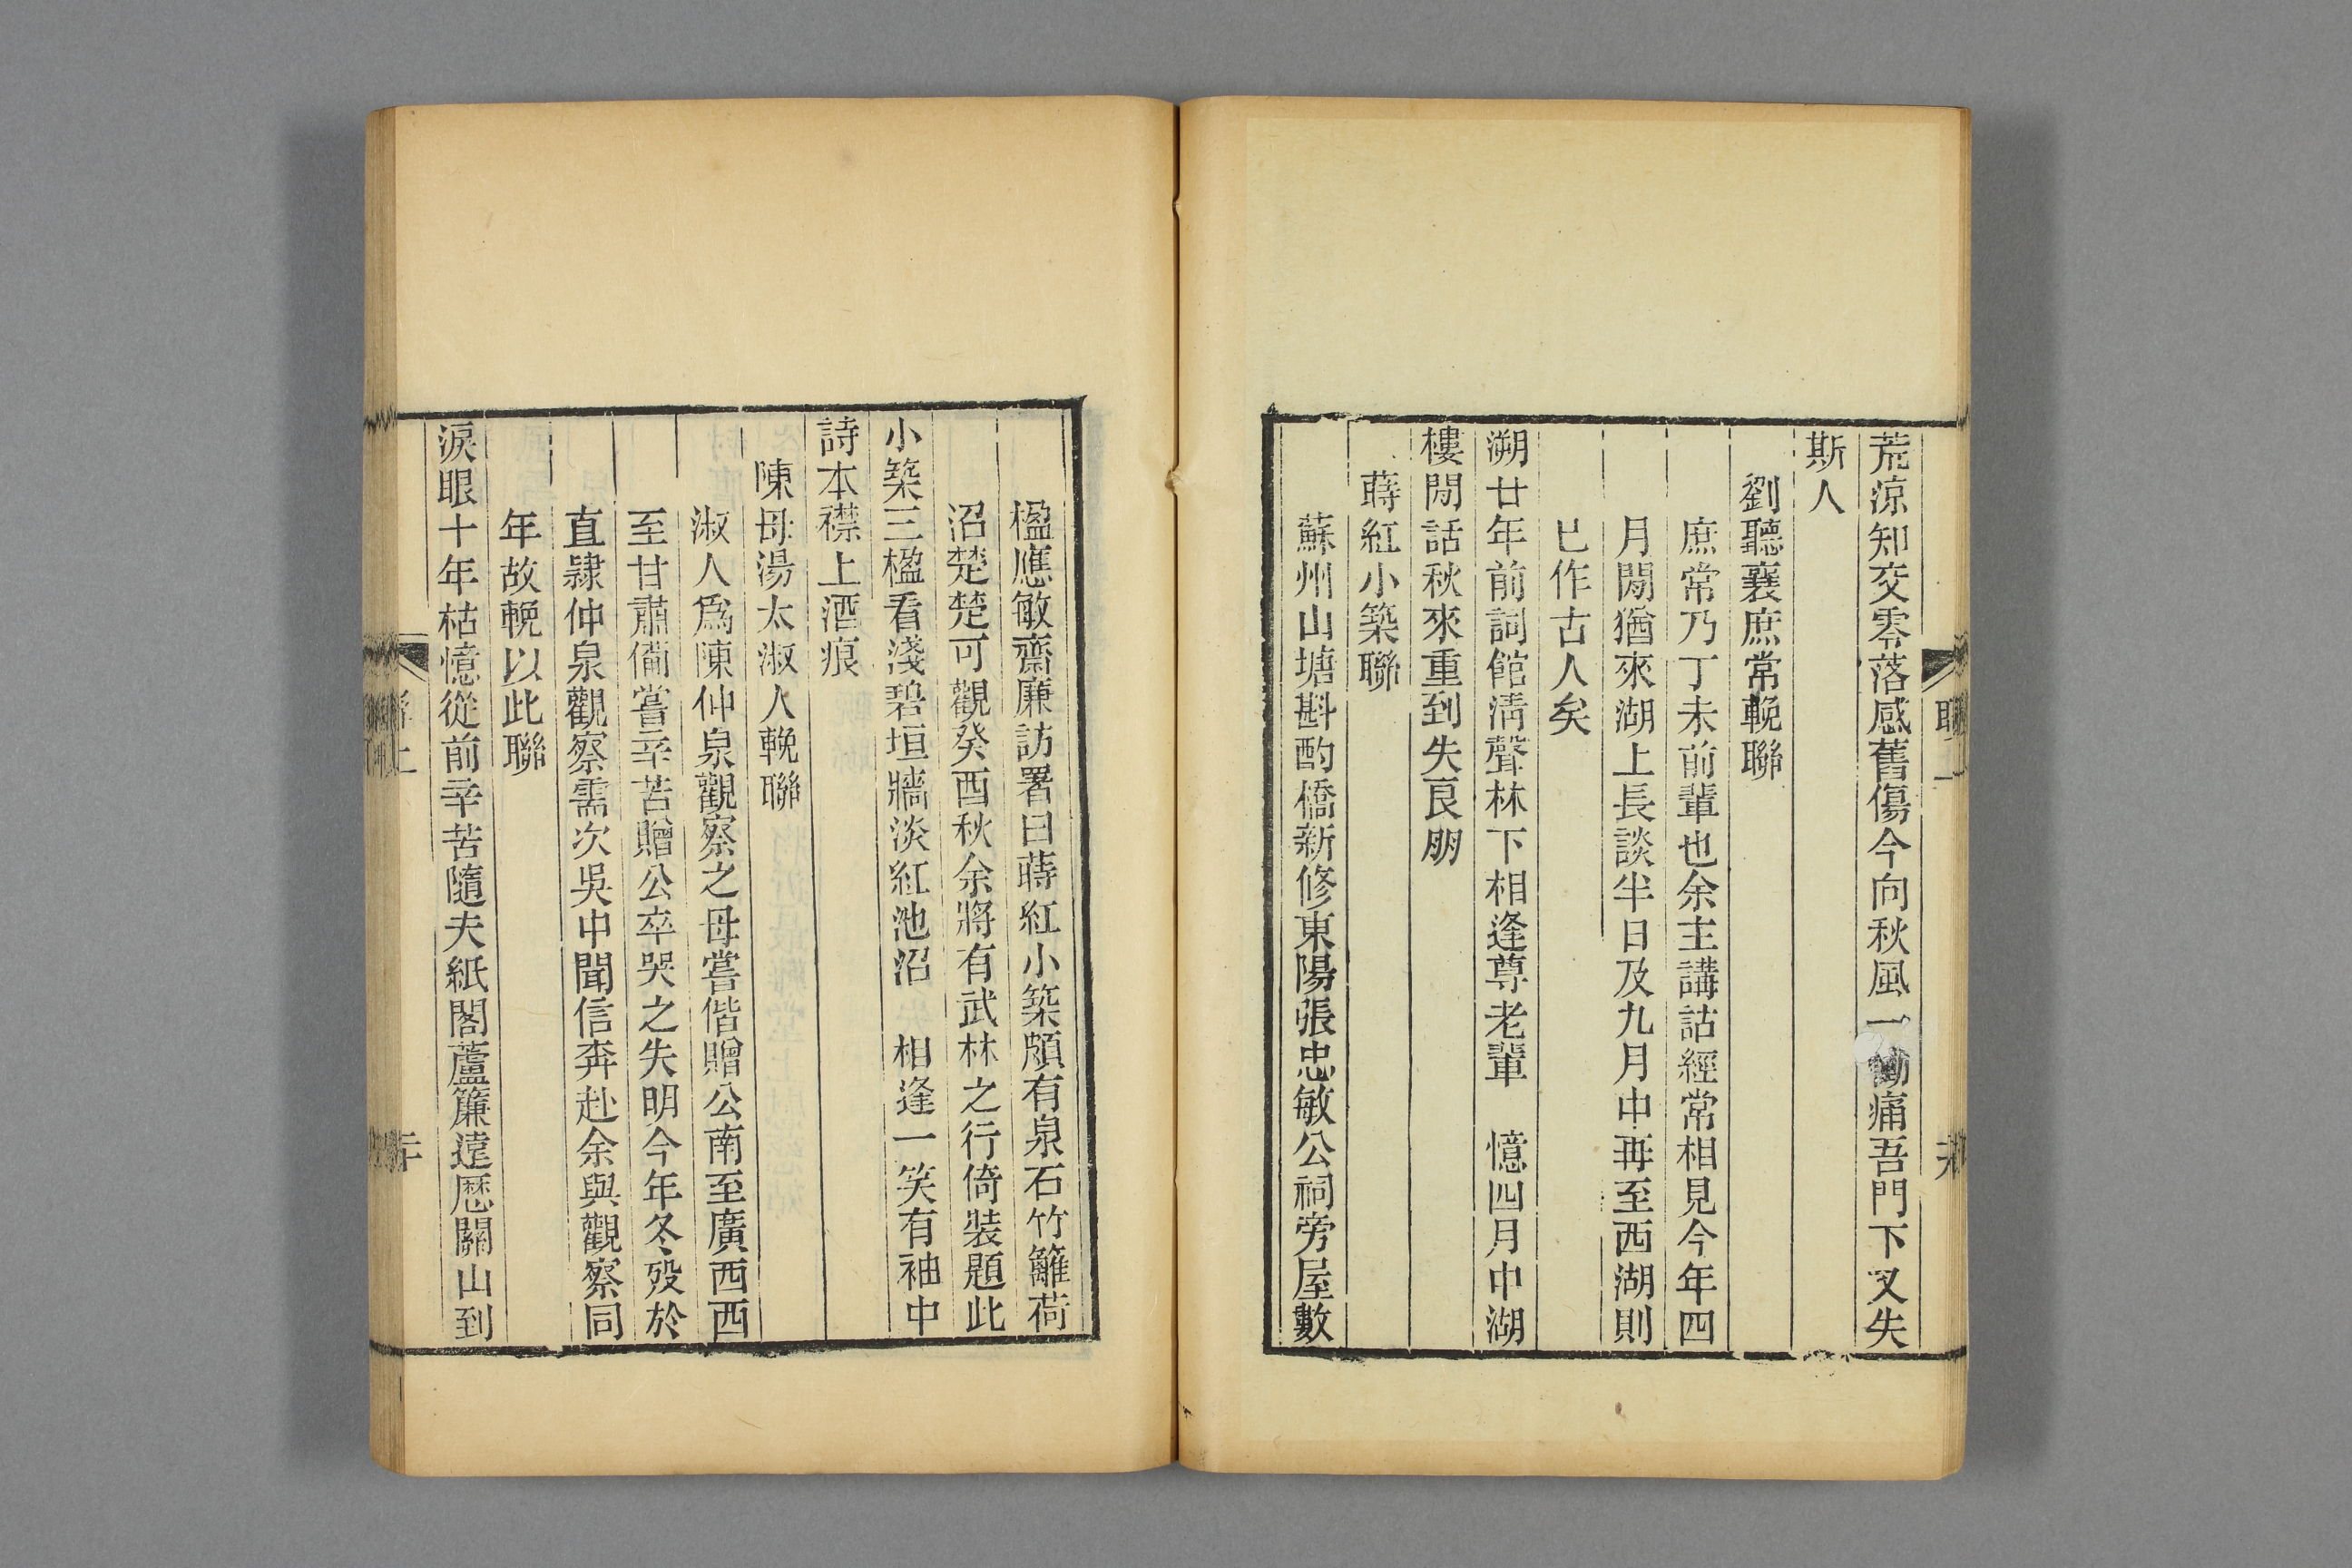 荒涼知交零落感舊傷今向秋風一慟痛吾門下又失
斯人
劉聽襄庶常輓聯
庶常乃丁未前輩也余主講詁經常相見今年四
月閒猶來湖上長談半日及九月中再至西湖則
已作古人矣
溯廿年前詞館清聲林下相逢尊老輩　憶四月中湖
樓閒話秋來重到失良朋
蒔紅小築聯
蘇州山塘斟酌橋新修東陽張忠敏公祠旁屋數
楹應敏齋廉訪署曰蒔紅小築頗有泉石竹籬荷
沼楚楚可觀癸酉秋余將有武林之行倚裝題此
小築三楹看淺碧垣牆淡紅池沼　相逢一笑有袖中
詩本襟上酒痕
陳母湯太淑人輓聯
淑人爲陳仲泉觀察之母嘗偕贈公南至廣西西
至甘肅僃嘗辛苦贈公卒哭之失明今年冬歿於
直隸仲泉觀察需次吳中聞信奔赴余與觀察同
年故輓以此聯
淚眼十年枯憶從前辛苦隨夫紙閣蘆簾遠歷關山到
聯上